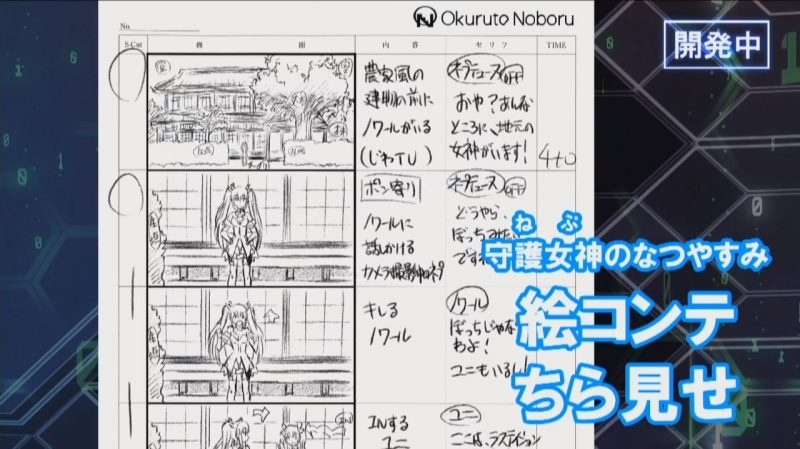 Okuruto Noboru
No.
S-Cut
画面
内容
セリフ
TIME
開発中
農家風の
建物の前に
ノワールがいる
(じわTU)
ネプテューヌ OFF
おや?あんな
ところに、地元の
女神がいます!
4+0
ポン寄り
ノワールに
話しかける
ネプテューヌ OFF
どうやら、
キレる
ノワール
ノワール
ぼっちじゃな
わよ!
ユニもいるし!
INする
ユニ
IN
ユニ
ここは、ラステイション
ねぷ
守護女神のなつやすみ
絵コンテ
ちら見せ